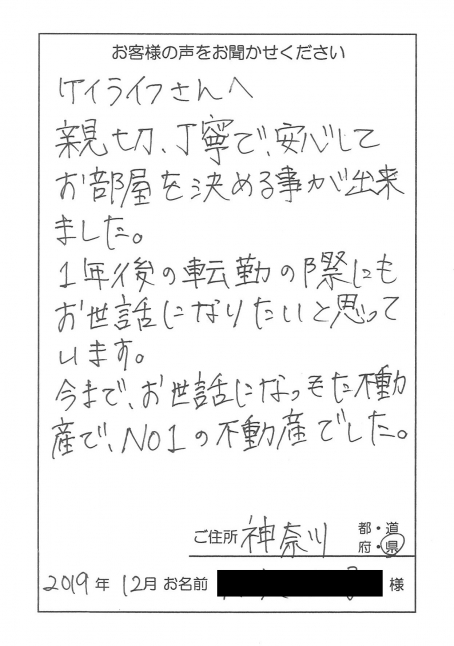 お客様の声をお聞かせください
ケイライフさんへ
親切、丁寧で、安心して
お部屋を決める事が出来
ました。
1年後の転勤の際にも
お世話になりたいと思って
います。
今まで、お世話になってきた不動
産で、NO1の不動産でした。
ご住所 神奈川 都・道
府・県
2019年 12月 お名前 様